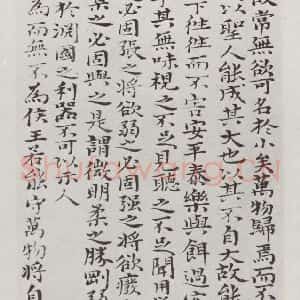 故常無欲可名於小矣萬物歸焉而不
以聖人能成其大也其不自大故能
下往往而不害安平泰樂與餌過
乎其無味視之不足見聽之不足聞用
之必固張之將欲弱之必固强之將欲廢
之必固興之是謂微明柔之勝剛弱
於淵國之利器不可以示人
為而無不為侯王若能守萬物將自
Shufawang.CN